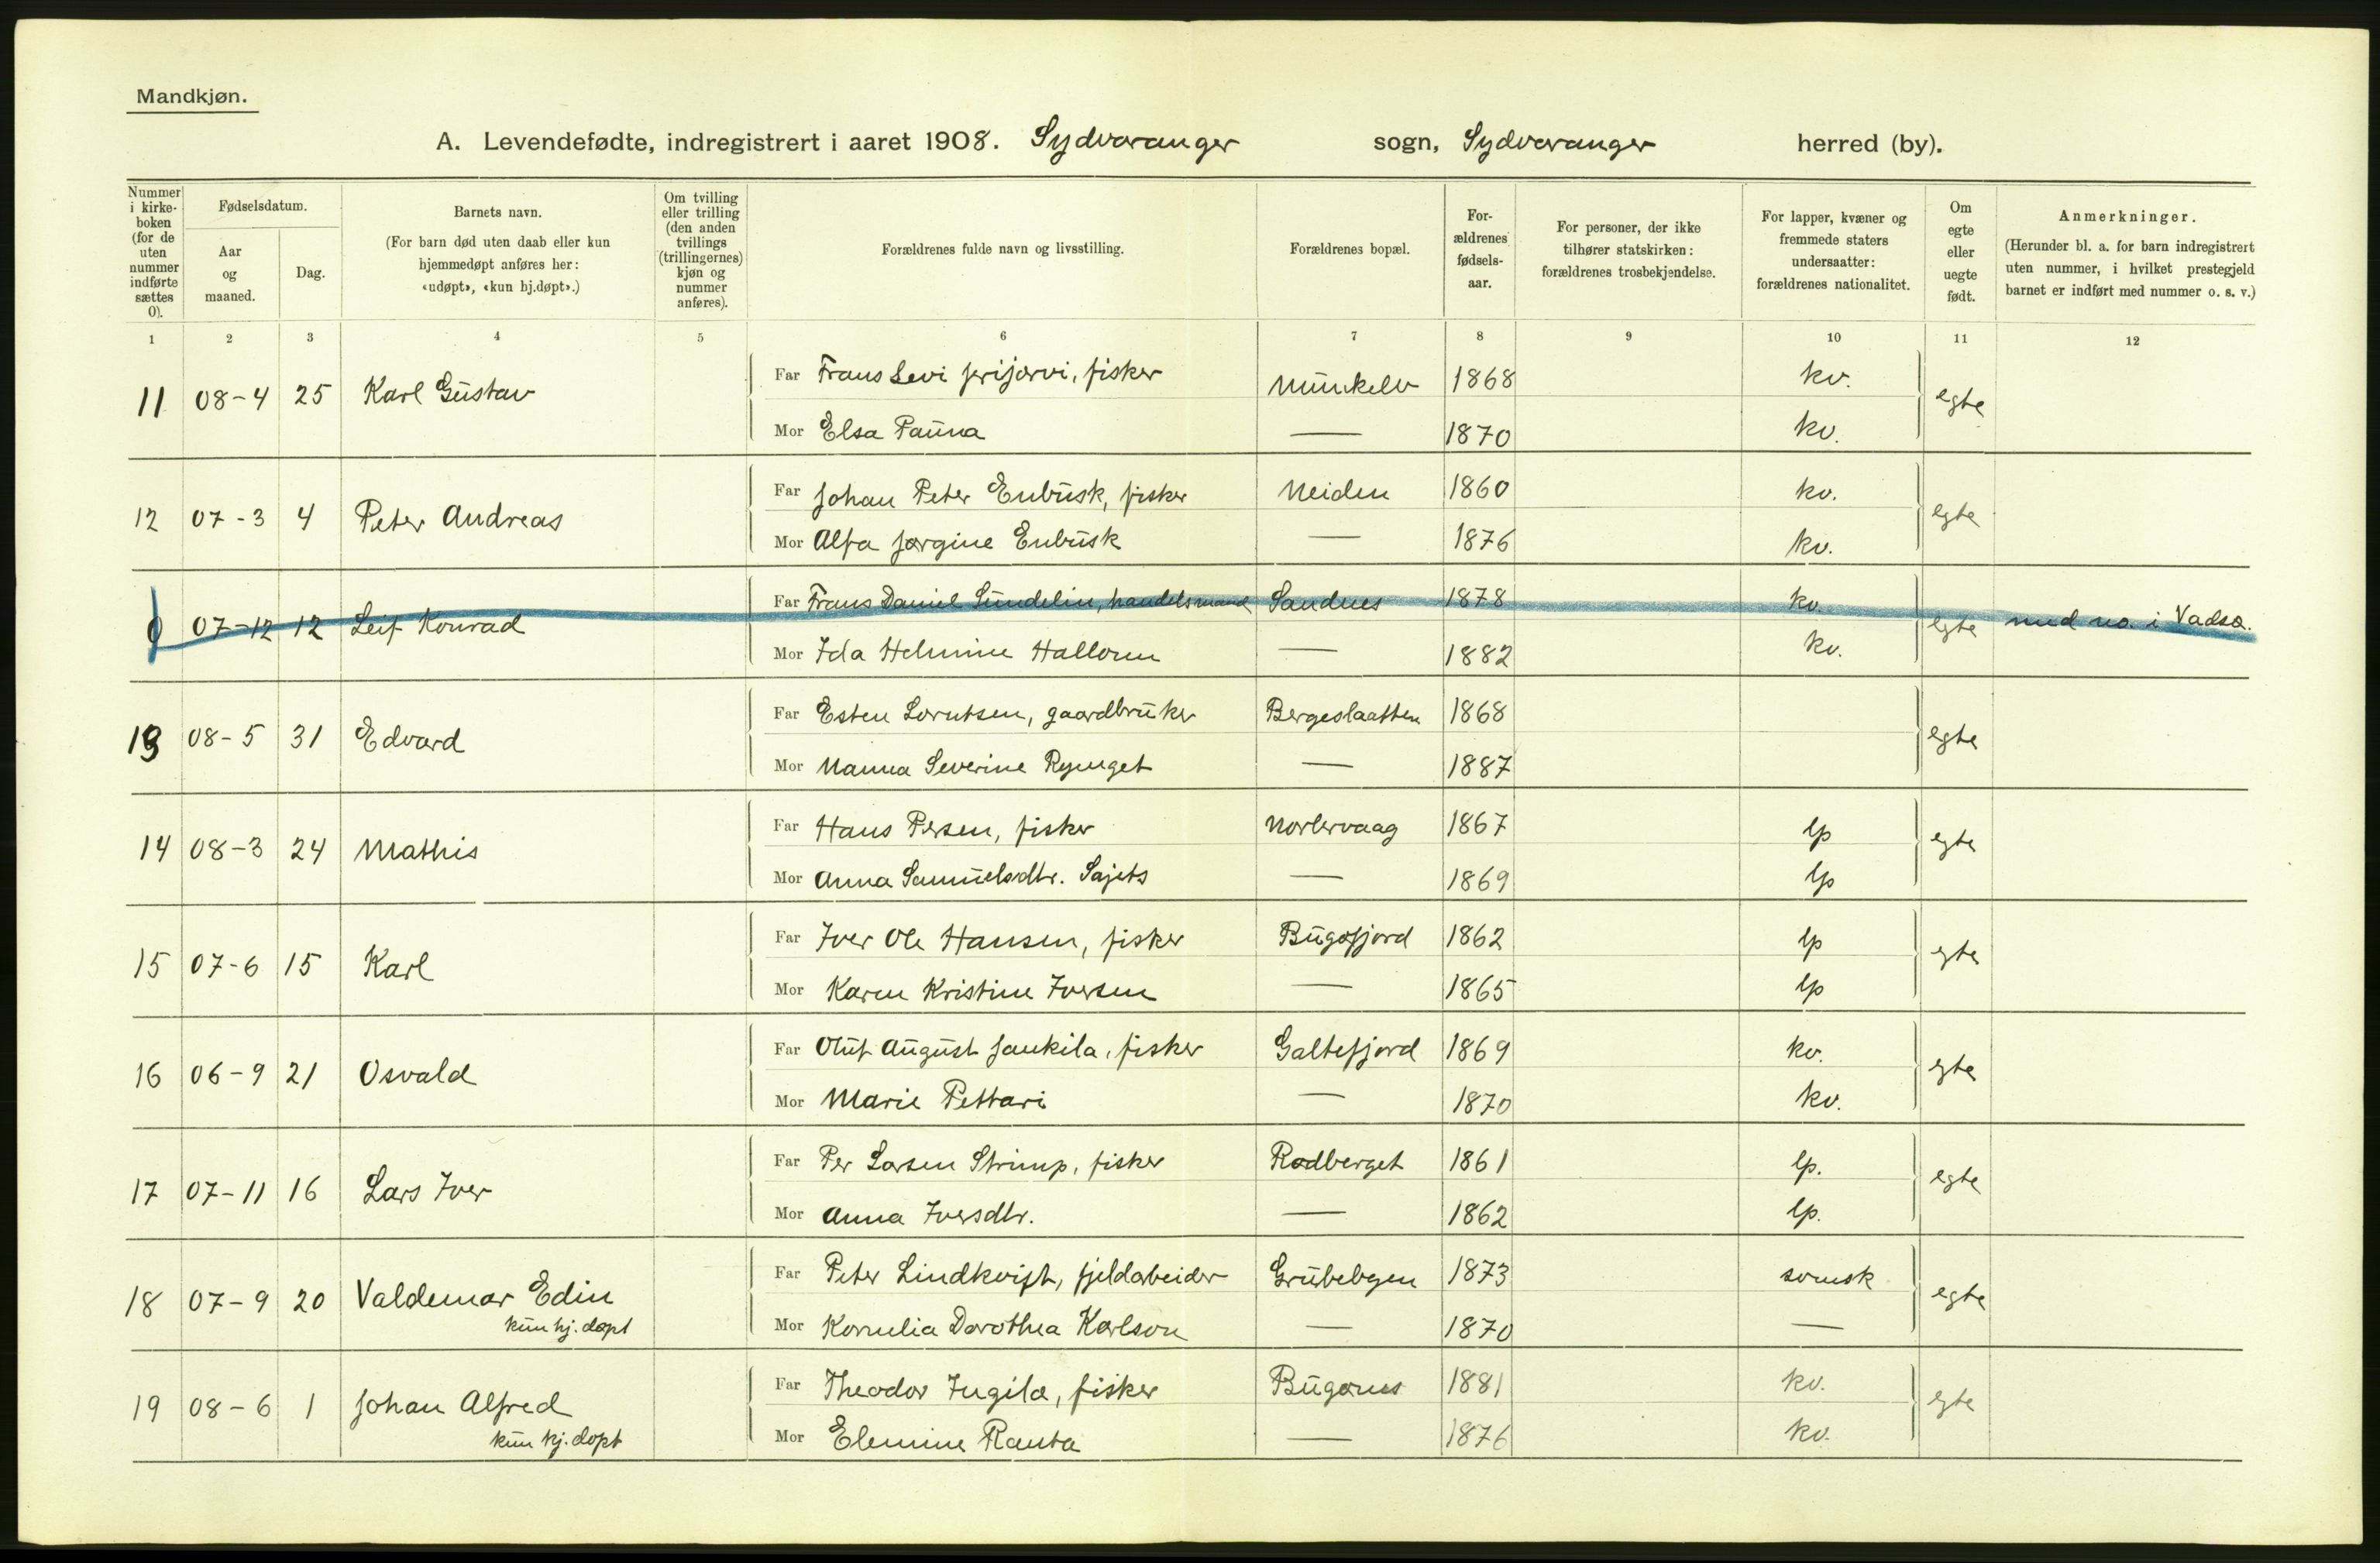 Mandkjøn.
A. Levendefødte, indregistrert i aaret 1908. Sydvaranger sogn, Sydvaranger herred (by).
Nummer i kirkeboken (for de uten nummer indførte sættes 0).
Fødselsdatum.
Aar og maaned.
Dag.
Barnets navn.
(For barn død uten daab eller kun hjemmedøpt anføres her: «udøpt», «kun hj.døpt».)
Om tvilling eller trilling (den anden tvillings (trillingernes) kjøn og nummer anføres).
Forældrenes fulde navn og livsstilling.
Forældrenes bopæl.
Forældrenes fødselsaar.
For personer, der ikke tilhører statskirken: forældrenes trosbekjendelse.
For lapper, kvæner og fremmede staters undersaatter: forældrenes nationalitet.
Om egte eller uegte født.
Anmerkninger.
(Herunder bl. a. for barn indregistrert uten nummer, i hvilket prestegjeld barnet er indført med nummer o. s. v.)
1 2 3 4 5 6 7 8 9 10 11 12
11 08-4 25 Karl Gustav Far Frans Levi Jerijærvi, fisker Munkelv 1868 kv. egte
Mor Elsa Pauna — 1870 kv.
12 07-3 4 Peter Andreas Far Johan Peter Enbusk, fisker Neiden 1860 kv. egte
Mor Alfa Jørgine Enbusk — 1876 kv.
0 07-12 12 Leif Konrad Far Frans Daniel Sundelin, handelsmand Sandnes 1878 kv. egte med no. i Vadsø.
Mor Ida Helmine Halloren — 1882 kv.
13 08-5 31 Edvard Far Esten Lorntsen, gaardbruker Bergeslaatten 1868 egte
Mor Nanna Severine — 1887
14 08-3 24 Mathis Far Hans Persen, fisker 1867 lp egte
Mor Anna Samuelsdtr. Sajets — 1869 lp
15 07-6 15 Karl Far Iver Ole Hansen, fisker Bugøfjord 1862 lp egte
Mor Karen Kristine Iversen — 1865 lp
16 06-9 21 Osvald Far Oluf August Jankila, fisker Galtefjord 1869 kv. egte
Mor Marie Pettari — 1870 kv.
17 07-11 16 Lars Iver Far Per Larsen Strimp, fisker Rødberget 1861 lp. egte
Mor Anna Iversdtr. — 1862 lp.
18 07-9 20 Valdemar Edin Far Peter Lindkvist, fjeldarbeider Grubebyen 1873 svensk egte
kun hj. døpt Mor Kornelia Dorothea Karlson — 1870 —
19 08-6 1 Johan Alfred Far Theodor Ingilæ, fisker Bugønes 1881 kv. egte
kun hj. døpt Mor Elenine Ranta — 1876 kv.